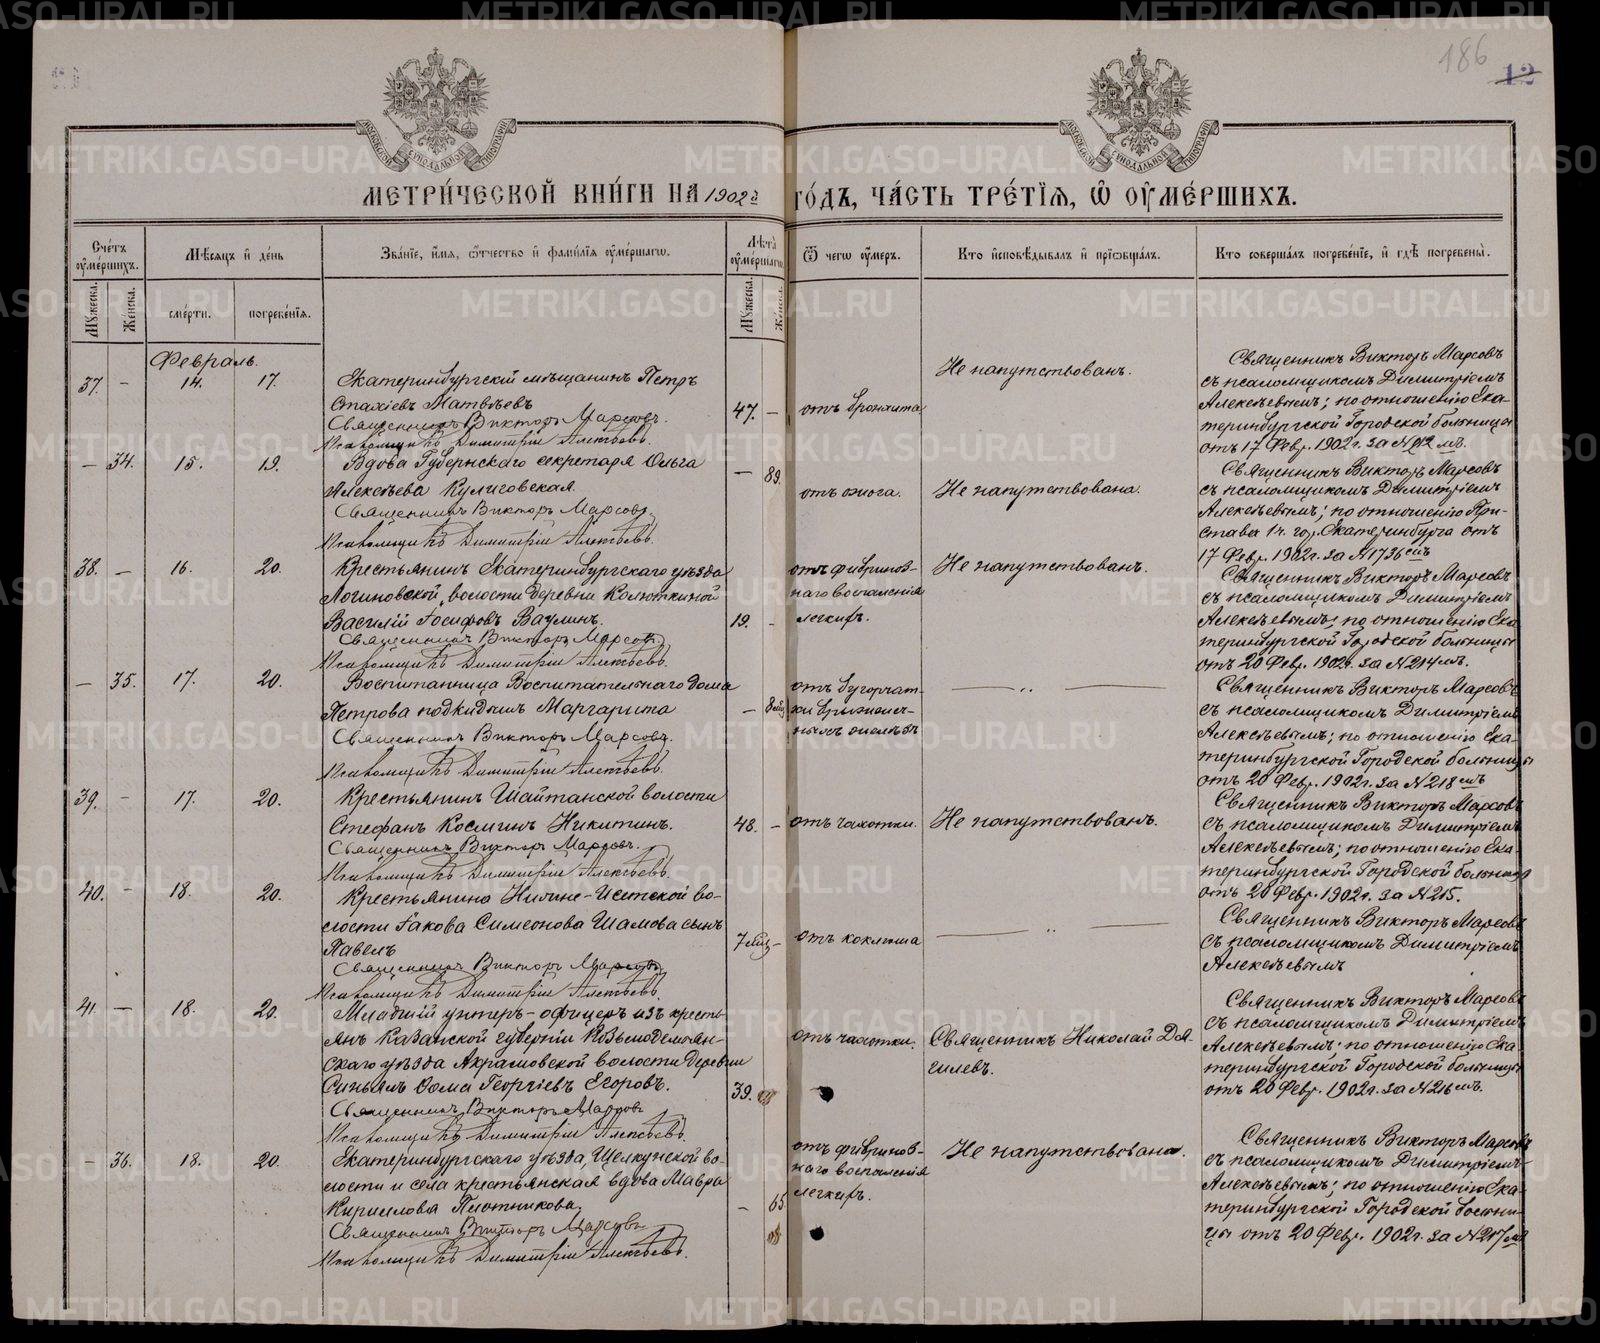 186
12
МОСКОВСКОЙ СѴНОДАЛЬНОЙ ТИПОГРАФІИ
МОСКОВСКОЙ СѴНОДАЛЬНОЙ ТИПОГРАФІИ
МЕТРИ́ЧЕСКОЙ КНИ́ГИ НА 1902й ГО́ДЪ, ЧА́СТЬ ТРЕ́ТІЯ, Ѿ ОУ҆МЕ́РШИХЪ.
Сче́тъ оу҆ме́ршихъ.
Мѣсяцъ и҆ де́нь
Зва́ніе, и҆́мя, ѻ҆́тчество и҆ фами́лія оу҆ме́ршагѡ.
Лѣта̀ оу҆ме́ршагѡ
Ѿ чегѡ̀ оу҆́меръ.
Кто̀ и҆сповѣ́дывалъ и҆ пріѡбща́лъ.
Кто̀ соверша́лъ погребе́ніе, и҆ гдѣ̀ погребены̀.
Мꙋжеска.
Же́нска.
сме́рти.
погребе́нія.
Мꙋжеска.
Же́нска.
Февраль.
37. – 14. 17.
Екатеринбургскій мѣщанинъ Петръ
Стахіевъ Матвѣевъ
Священникъ Викторъ Марсовъ.
Псаломщикъ Димитрій Алексѣевъ.
47. –
отъ бронхита
Не напутствованъ.
Священникъ Викторъ Марсовъ
съ псаломщикомъ Димитріемъ
Алексѣевымъ; по отношенію Ека-
теринбургской Городской больницы
отъ 17 Февр. 1902 г. за № 212 мъ.
– 34. 15. 19.
Вдова Губернскаго секретаря Ольга
Алексѣева Кулисовская
Священникъ Викторъ Марсовъ.
Псаломщикъ Димитрій Алексѣевъ.
– 89.
отъ ожога.
Не напутствована.
Священникъ Викторъ Марсовъ
съ псаломщикомъ Димитріемъ
Алексѣевымъ; по отношенію При-
става 1 ч. гор. Екатеринбурга отъ
17 Февр. 1902 г. за № 1736 смъ
38. – 16. 20.
Крестьянинъ Екатеринбургскаго уѣзда
Логиновской волости деревни Колюткиной
Василій Іосифовъ Ваулинъ.
Священникъ Викторъ Марсовъ
Псаломщикъ Димитрій Алексѣевъ.
19. –
отъ фибриноз-
наго воспаленія
легкихъ.
Не напутствованъ.
Священникъ Викторъ Марсовъ
съ псаломщикомъ Димитріемъ
Алексѣевымъ; по отношенію Ека-
теринбургской Городской больницы
отъ 20 Февр. 1902 г. за № 214 мъ.
– 35. 17. 20.
Воспитанница Воспитательнаго дома
Петрова подкидышъ Маргарита
Священникъ Викторъ Марсовъ.
Псаломщикъ Димитрій Алексѣевъ.
– 8
отъ бугорчат-
ки
Священникъ Викторъ Марсовъ
съ псаломщикомъ Димитріемъ
Алексѣевымъ; по отношенію Ека-
теринбургской Городской больницы
отъ 20 Февр. 1902 г. за № 218 мъ
39. – 17. 20.
Крестьянинъ Шайтанской волости
Стефанъ Космичъ Никитинъ.
Священникъ Викторъ Марсовъ.
Псаломщикъ Димитрій Алексѣевъ.
48. –
отъ чахотки.
Не напутствованъ.
Священникъ Викторъ Марсовъ
съ псаломщикомъ Димитріемъ
Алексѣевымъ; по отношенію Ека-
теринбургской Городской больницы
отъ 20 Февр. 1902 г. за № 215.
40. – 18. 20.
Крестьянина Нижне-Исетской во-
лости Іакова Симеонова Шамова сынъ
Павелъ
Священникъ Викторъ Марсовъ
Псаломщикъ Димитрій Алексѣевъ.
7 –
отъ коклюша
Священникъ Викторъ Марсовъ
съ псаломщикомъ Димитріемъ
Алексѣевымъ
41. – 18. 20.
Младшій унтеръ-офицеръ изъ кресть-
янъ Казанской губерніи Козьмодемьян-
скаго уѣзда Акрамовской волости деревни
Синьялъ Ѳома Георгіевъ Егоровъ.
Священникъ Викторъ Марсовъ
Псаломщикъ Димитрій Алексѣевъ.
39.
отъ чахотки.
Священникъ Николай Дя-
гилевъ.
Священникъ Викторъ Марсовъ
съ псаломщикомъ Димитріемъ
Алексѣевымъ; по отношенію Ека-
теринбургской Городской больницы
отъ 20 Февр. 1902 г. за № 216 мъ.
– 36. 18. 20.
Екатеринбургскаго уѣзда, Щелкунской во-
лости и села крестьянская вдова Мавра
Кириллова Плотникова
Священникъ Викторъ Марсовъ
Псаломщикъ Димитрій Алексѣевъ.
– 65.
отъ фибриноз-
наго воспаленія
легкихъ.
Не напутствована.
Священникъ Викторъ Марсовъ
съ псаломщикомъ Димитріемъ
Алексѣевымъ; по отношенію Ека-
теринбургской Городской больни-
цы отъ 20 Февр. 1902 г. за № 217 мъ
METRIKI.GASO-URAL.RU